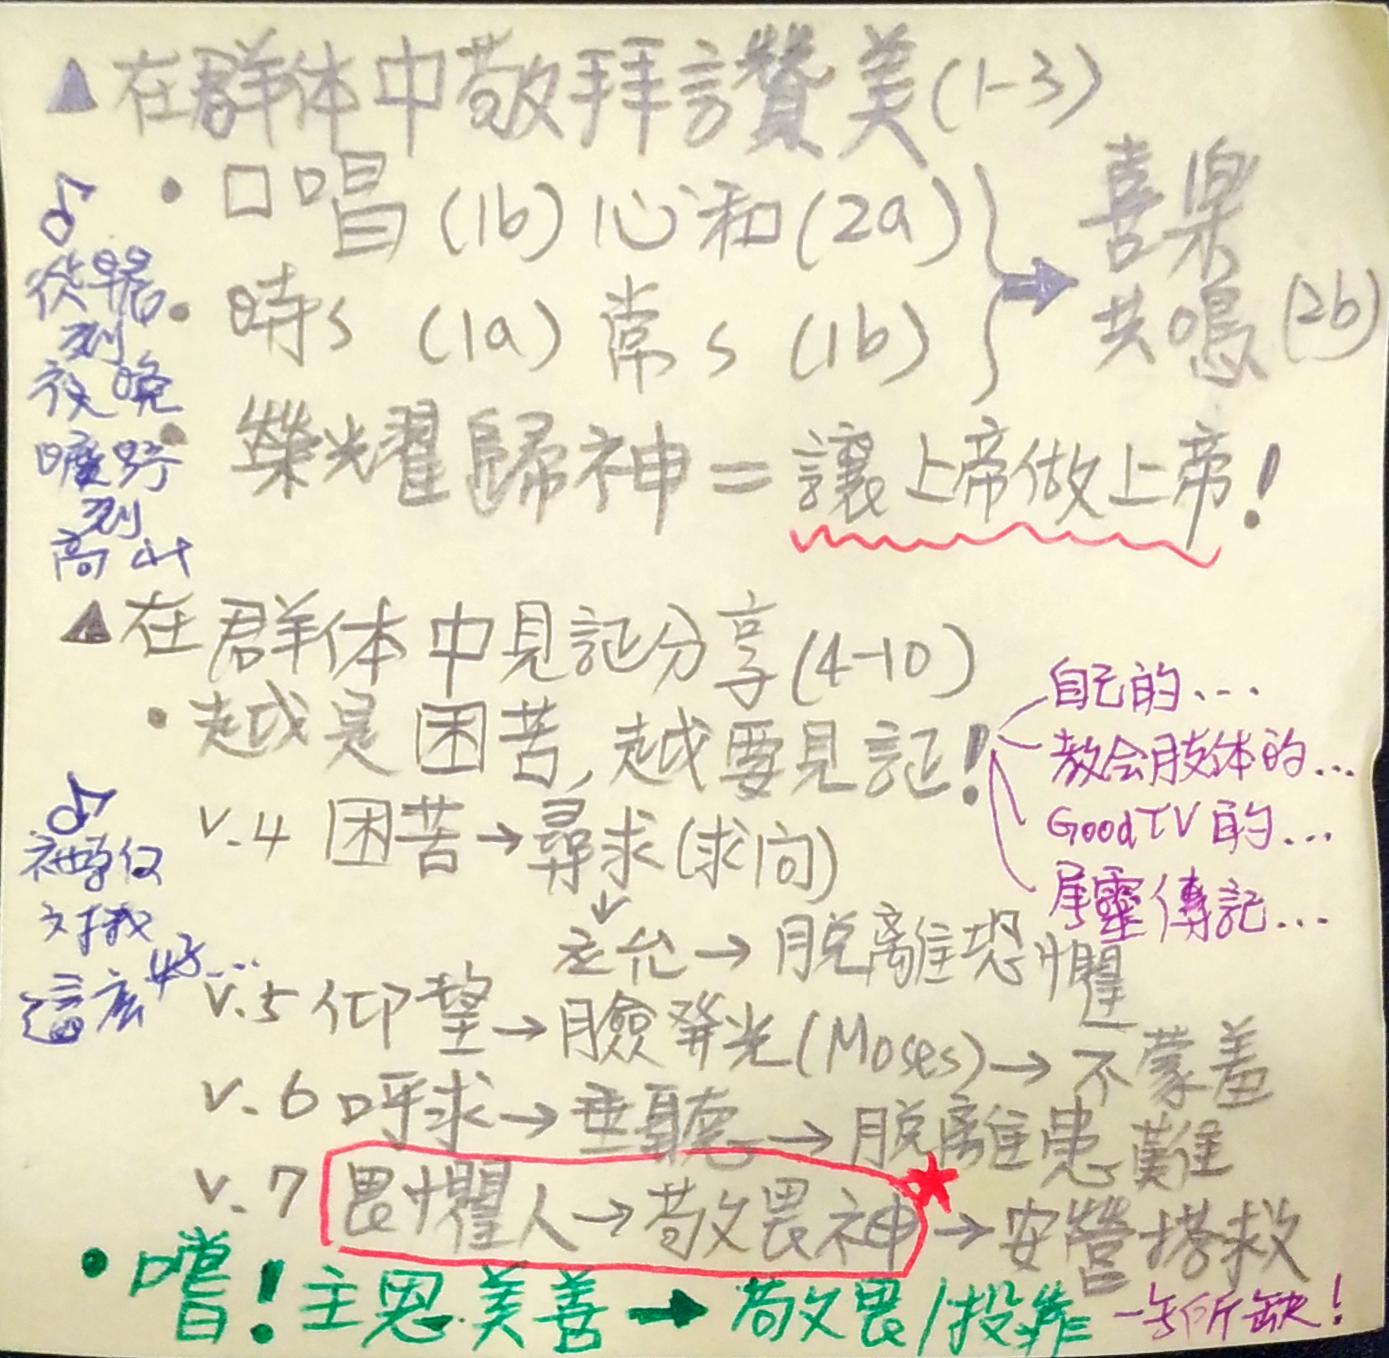 ▲在群体中敬拜讚美(1-3)
• 口唱(1b)心和(2a)
• 時々(1a)常々(1b)
→ 喜樂
共鳴(2b)
• 榮光耀歸神=讓上帝做上帝!
♪
從早晨
到
夜晚
曠野
到
高山
▲在群体中見証分享(4-10)
• 越是困苦,越要見証!
自己的...
教会肢体的...
GoodTV的...
屬靈傳記...
v.4 困苦→尋求(求问)
↓
应允→脫離恐懼
v.5 仰望→臉發光(Moses)→不蒙羞
v.6 呼求→垂聽→脫離患難
v.7 畏懼人→敬畏神★→安營搭救
♪
祢為何
对我
這麼好...
• 嚐!主恩美善→敬畏/投靠 一無所缺!